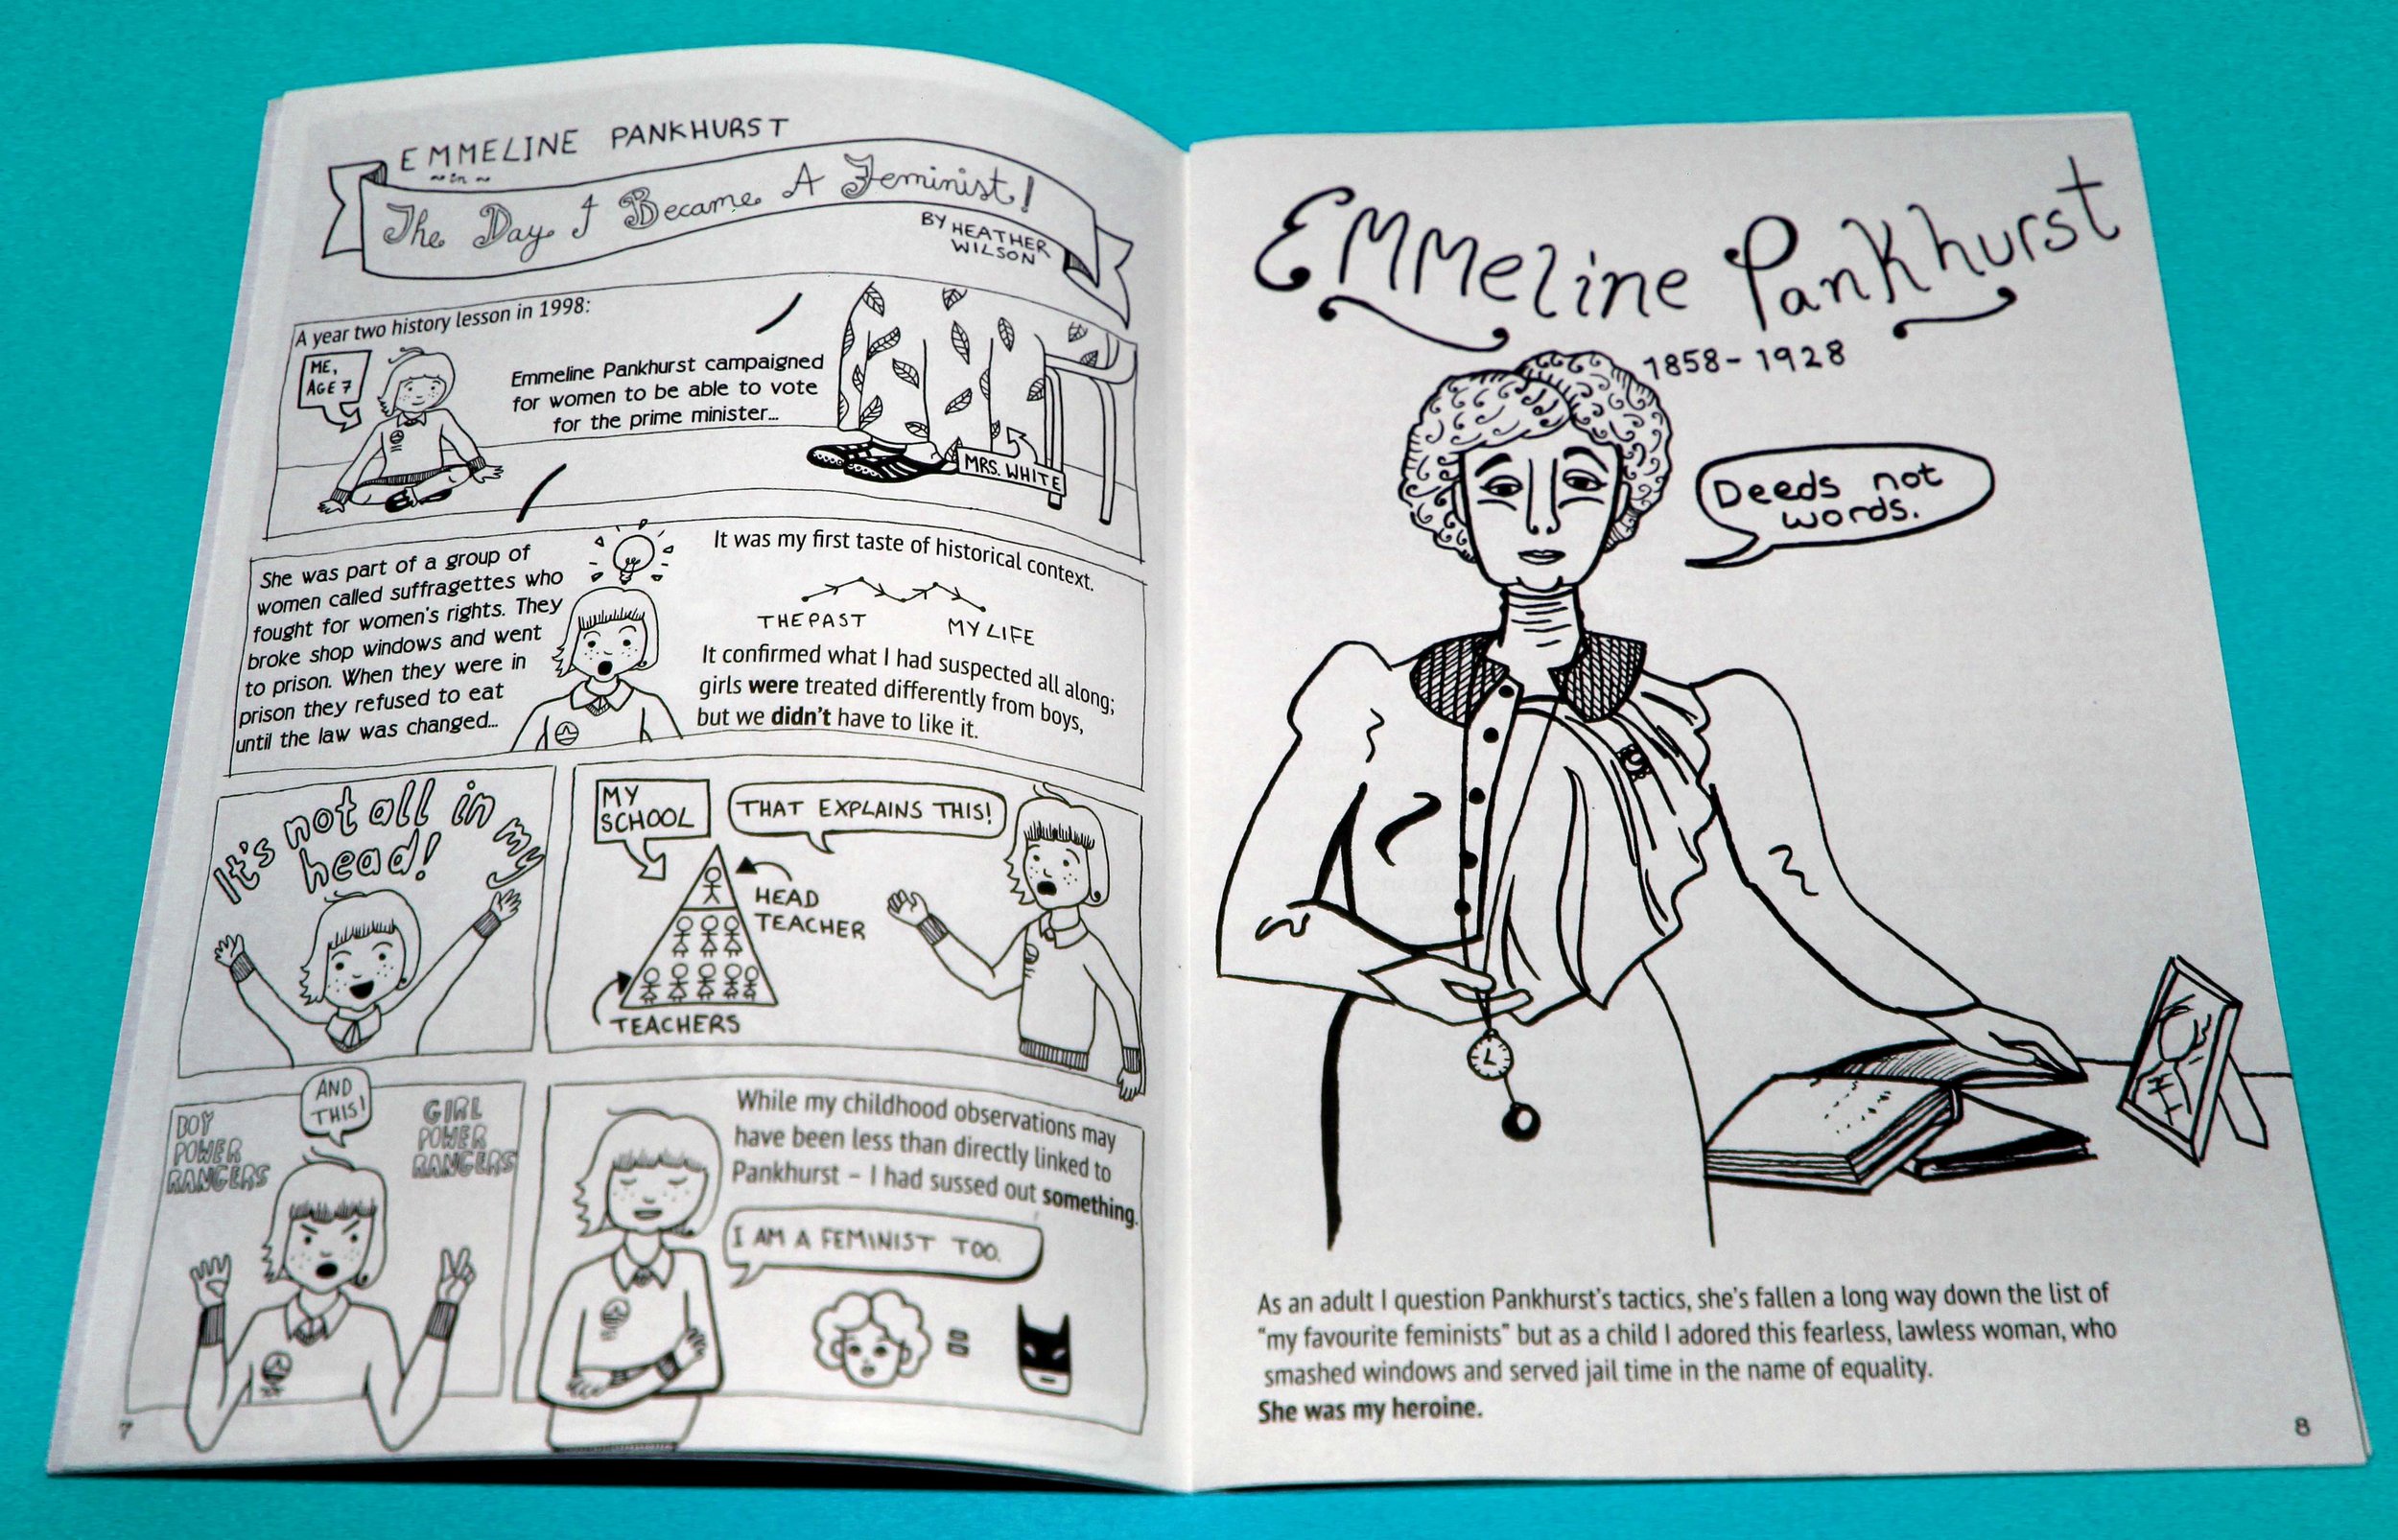 EMMELINE PANKHURST
~in~
The Day I Became A Feminist!
BY HEATHER
WILSON
A year two history lesson in 1998:
ME,
AGE 7
Emmeline Pankhurst campaigned
for women to be able to vote
for the prime minister...
MRS. WHITE
She was part of a group of
women called suffragettes who
fought for women's rights. They
broke shop windows and went
to prison. When they were in
prison they refused to eat
until the law was changed...
It was my first taste of historical context.
THE PAST
MY LIFE
It confirmed what I had suspected all along;
girls were treated differently from boys,
but we didn't have to like it.
It's not all in my
head!
MY
SCHOOL
THAT EXPLAINS THIS!
HEAD
TEACHER
TEACHERS
BOY
POWER
RANGERS
AND
THIS!
GIRL
POWER
RANGERS
While my childhood observations may
have been less than directly linked to
Pankhurst – I had sussed out something.
I AM A FEMINIST TOO.
=
7
Emmeline Pankhurst
1858-1928
Deeds not
words.
As an adult I question Pankhurst's tactics, she's fallen a long way down the list of
"my favourite feminists" but as a child I adored this fearless, lawless woman, who
smashed windows and served jail time in the name of equality.
She was my heroine.
8